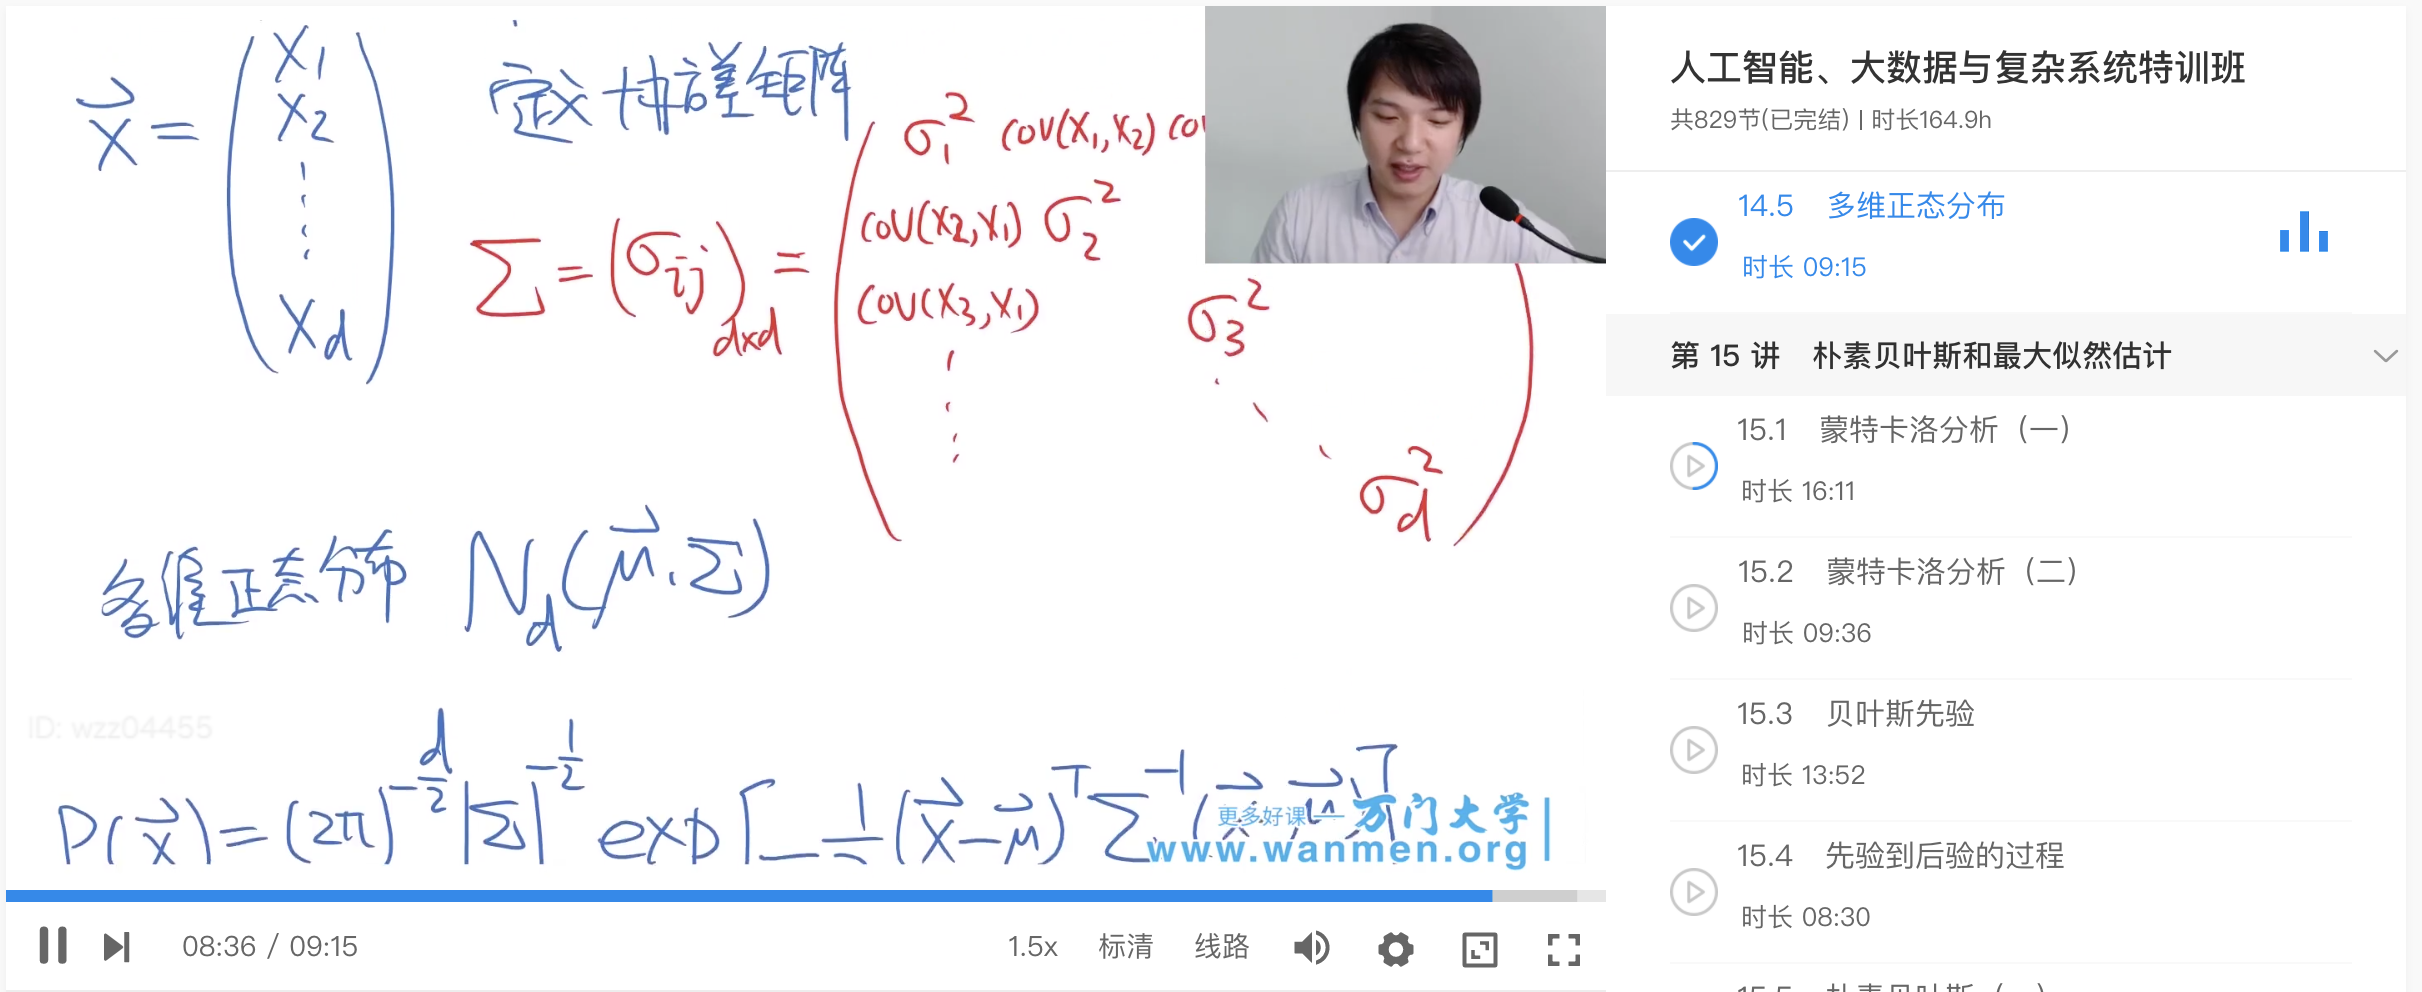 x⃗ = (x₁ x₂ ⋮ x_d)
定义协方差矩阵
Σ = (σᵢⱼ)d×d =
σ₁² cov(x₁,x₂) co
cov(x₂,x₁) σ₂²
cov(x₃,x₁) σ₃²
σ_d²
多维正态分布 N_d(μ⃗, Σ)
ID: wzz04455
P(x⃗) = (2π)^(-d/2) |Σ|^(-1/2) exp[-½(x⃗-μ⃗)^T Σ^(-1) (x⃗-μ⃗)]
更多好课 — 万门大学
www.wanmen.org
08:36 / 09:15
1.5x 标清 线路
人工智能、大数据与复杂系统特训班
共829节(已完结) | 时长164.9h
14.5 多维正态分布
时长 09:15
第 15 讲 朴素贝叶斯和最大似然估计
15.1 蒙特卡洛分析（一）
时长 16:11
15.2 蒙特卡洛分析（二）
时长 09:36
15.3 贝叶斯先验
时长 13:52
15.4 先验到后验的过程
时长 08:30